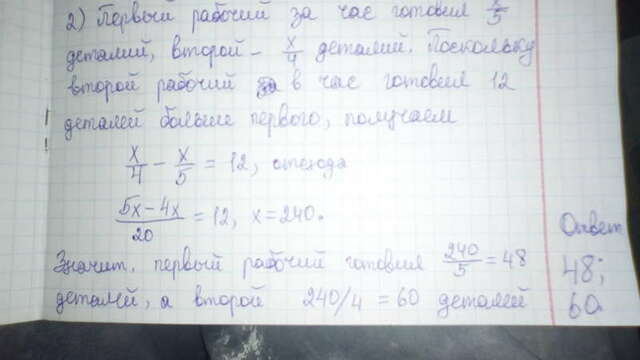 2) Первый рабочий за час готовил x/5
деталий, второй - x/4 деталий. Поскольку
второй рабочий в час готовил 12
деталей больше первого, получаем
x/4 - x/5 = 12, отсюда
(5x-4x)/20 = 12, x=240.
Ответ
Значит, первый рабочий готовил 240/5 = 48
48;
деталей, а второй 240/4 = 60 деталей
60.